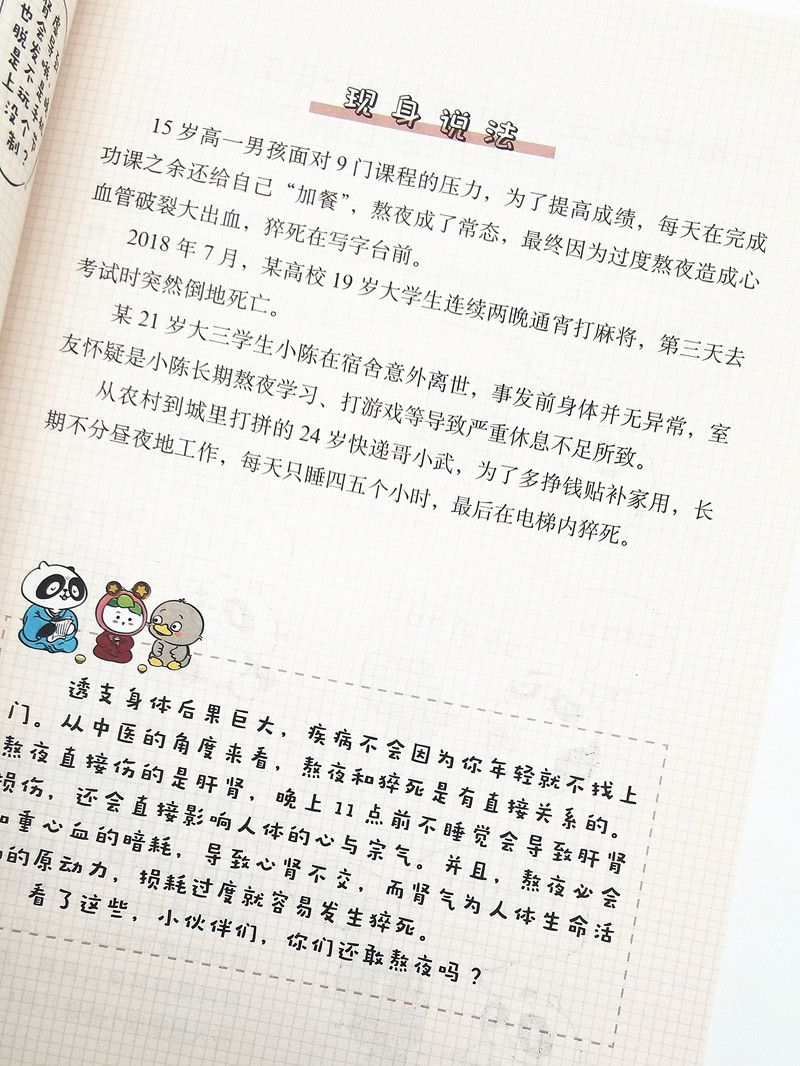 现身说法
15 岁高一男孩面对 9 门课程的压力，为了提高成绩，每天在完成
功课之余还给自己“加餐”，熬夜成了常态，最终因为过度熬夜造成心
血管破裂大出血，猝死在写字台前。
2018 年 7 月，某高校 19 岁大学生连续两晚通宵打麻将，第三天去
考试时突然倒地死亡。
某 21 岁大三学生小陈在宿舍意外离世，事发前身体并无异常，室
友怀疑是小陈长期熬夜学习、打游戏等导致严重休息不足所致。
从农村到城里打拼的 24 岁快递哥小武，为了多挣钱贴补家用，长
期不分昼夜地工作，每天只睡四五个小时，最后在电梯内猝死。
透支身体后果巨大，疾病不会因为你年轻就不找上
门。从中医的角度来看，熬夜和猝死是有直接关系的。
熬夜直接伤的是肝肾，晚上 11 点前不睡觉会导致肝肾
损伤，还会直接影响人体的心与宗气。并且，熬夜必会
重心血的暗耗，导致心肾不交，而肾气为人体生命活
的原动力，损耗过度就容易发生猝死。
看了这些，小伙伴们，你们还敢熬夜吗？